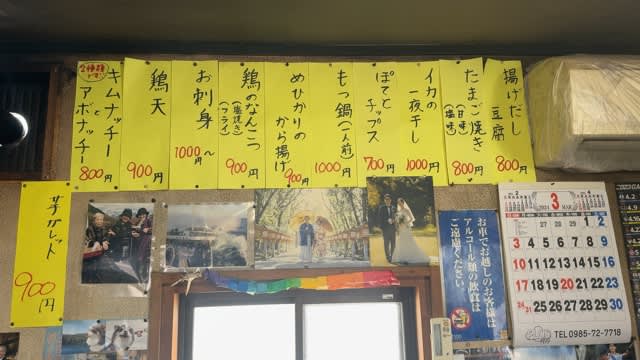 揚げだし
豆腐
800円
たまご焼き
(甘味)
(塩味)
800円
イカの
一夜干し
1000円
ぽてと
チップス
700円
もつ鍋(一人前)
1000円
めひかりの
から揚げ
900円
鶏のなんこつ
(塩焼き)
(フライ)
900円
お刺身
1000円〜
鶏天
900円
2種類
キムナッチー
と
アボナッチー
800円
芋ガレット
900円
お車でお越しのお客様は
アルコール類の飲食は
ご遠慮ください
3
2024
MAR
1 2
3 4 5 6 7 8 9
10 11 12 13 14 15 16
17 18 19 20 21 22 23
24 25 26 27 28 29 30
31
TEL 0985-72-7718